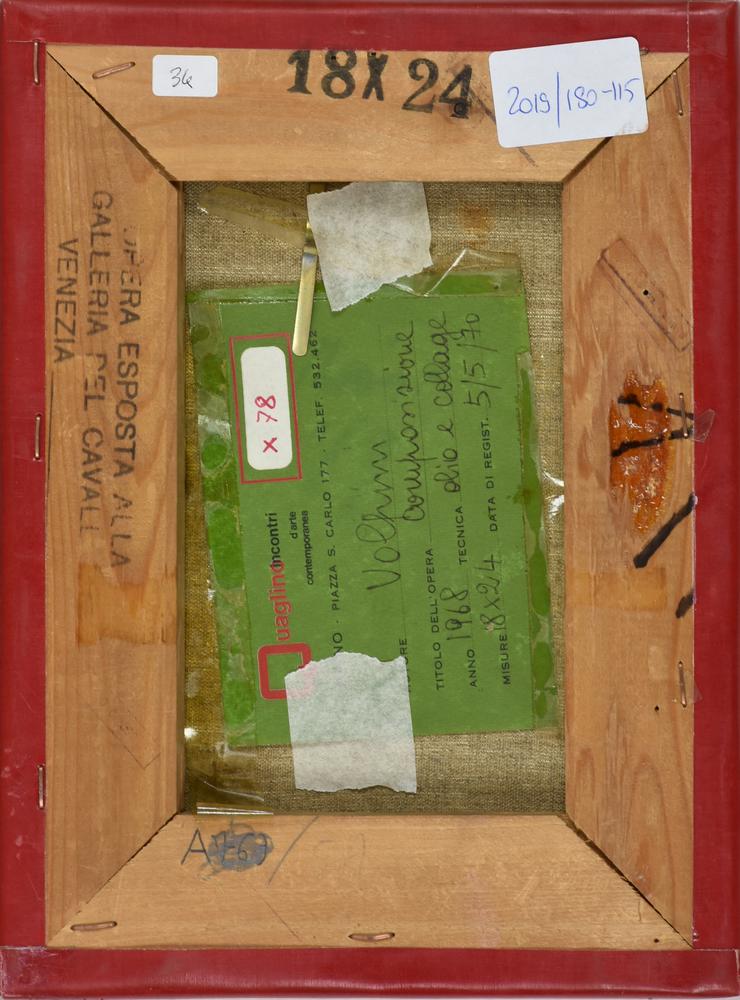 36
18X24
2019/180-115
OPERA ESPOSTA ALLA
GALLERIA DEL CAVALL
VENEZIA
x 78
Quaglino incontri
d'arte
contemporanea
NO · PIAZZA S. CARLO 177 · TELEF. 532.462
ORE Volpini
TITOLO DELL'OPERA composizione
ANNO 1968 TECNICA olio e collage
MISURE 18x24 DATA DI REGIST. 5/5/70